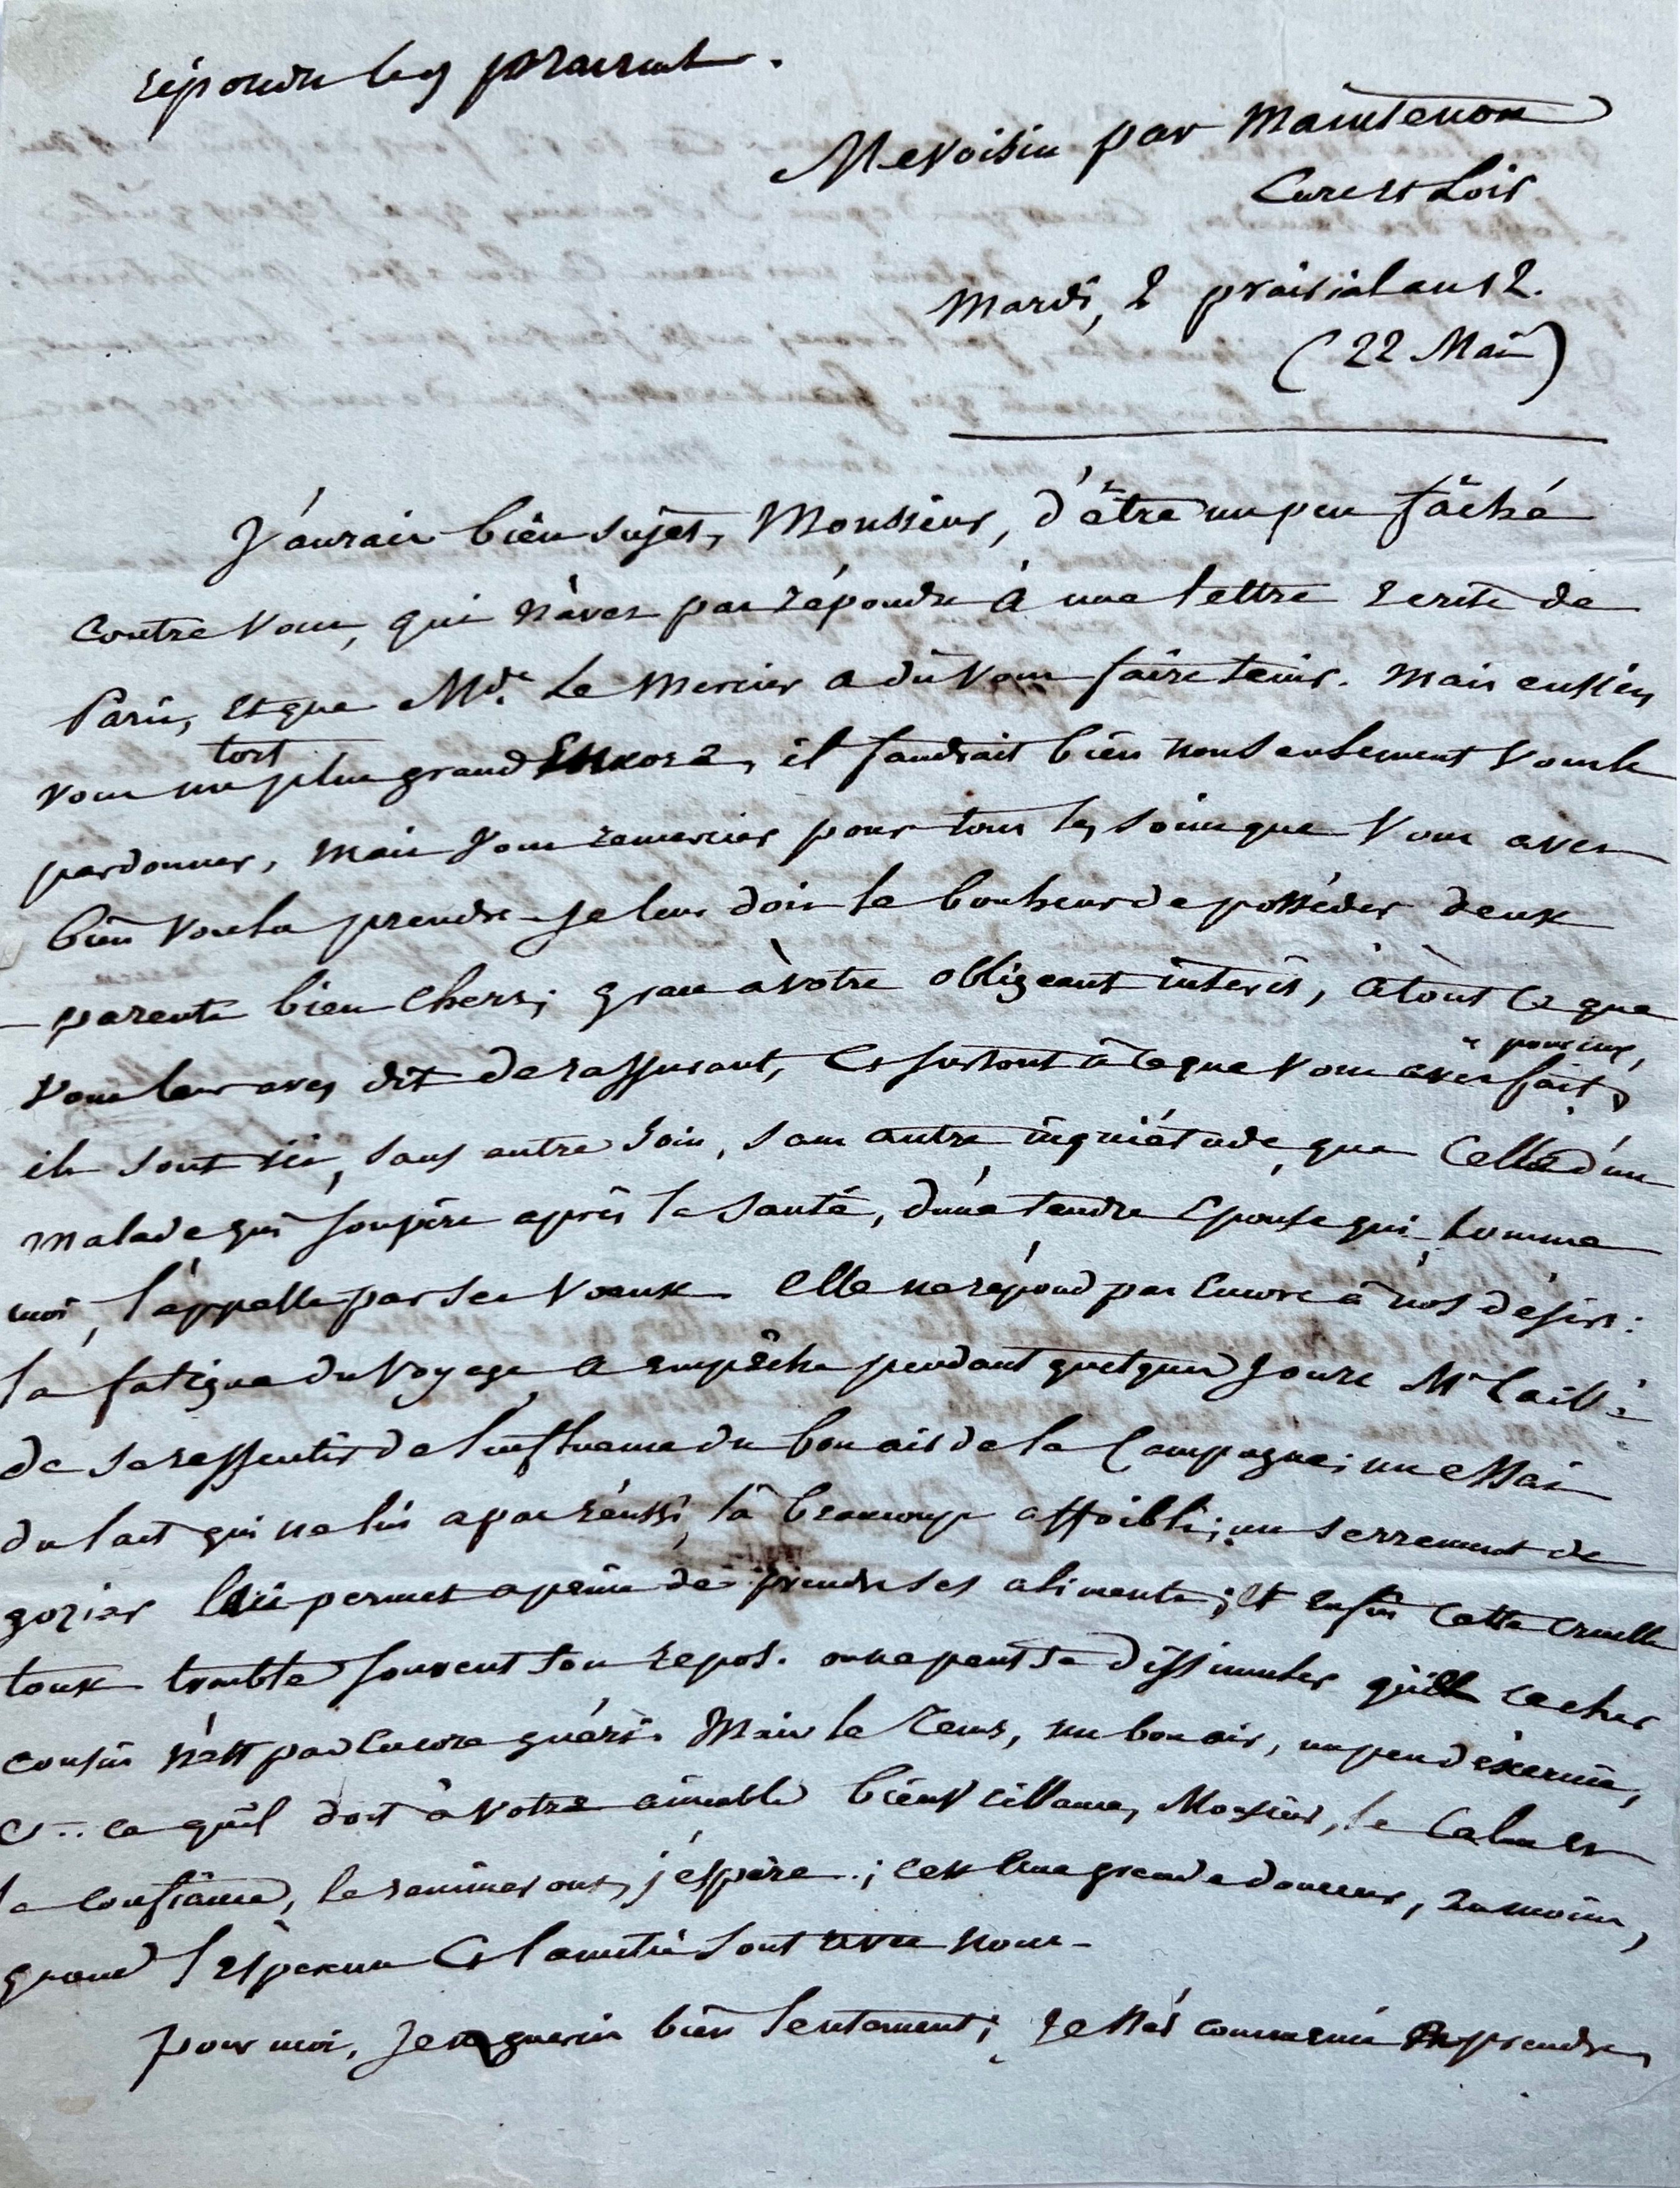 répondu le 9 prairial.
Mevoisin par Maintenon
Eure et Loir
Mardi, 2 prairial an 12.
(22 Mai)
J'aurais bien sujet, Monsieur, d'être un peu fâché
contre vous, qui n'avez pas répondu à une lettre écrite de
Paris, et que Mde. Le Mercier a dû vous faire tenir. Mais eussiez
vous un plus grand tort encore, il faudrait bien non seulement vous le
pardonner, mais vous remercier pour tous les soins que vous avez
bien voulu prendre. Je leur dois le bonheur de posséder deux
parents bien chers; grace à votre obligeant intérêt, à tout ce que
vous leur avez dit de rassurant, et surtout à ce que vous avez fait pour eux,
ils sont ici, sans autre soin, sans autre inquiétude, que celle d'un
malade qui soupire après la santé, d'une tendre épouse qui, comme
moi, l'appelle par ses voeux. Elle ne répond pas encore à nos désirs:
la fatigue du voyage a empêché pendant quelques jours Mr Caillé
de se ressentir de l'influence du bon air de la campagne; un essai
du lait qui ne lui a pas réussi, l'a beaucoup affoibli; un serrement de
gozier lui permet a peine de prendre ses aliments; et enfin cette cruelle
toux trouble souvent son repos. on ne peut se dissimuler que ce cher
cousin n'est pas encore guéri. Mais le tems, un bon air, un peu d'exercice,
et .. ce qu'il doit à votre aimable bienveillance, Monsieur, le calme et
la confiance, le ranimeront, j'espère; c'est une grande douceur, du moins,
quand l'espérance et l'amitié sont avec nous.
pour moi, je guéris bien lentement; je n'ai commencé à prendre